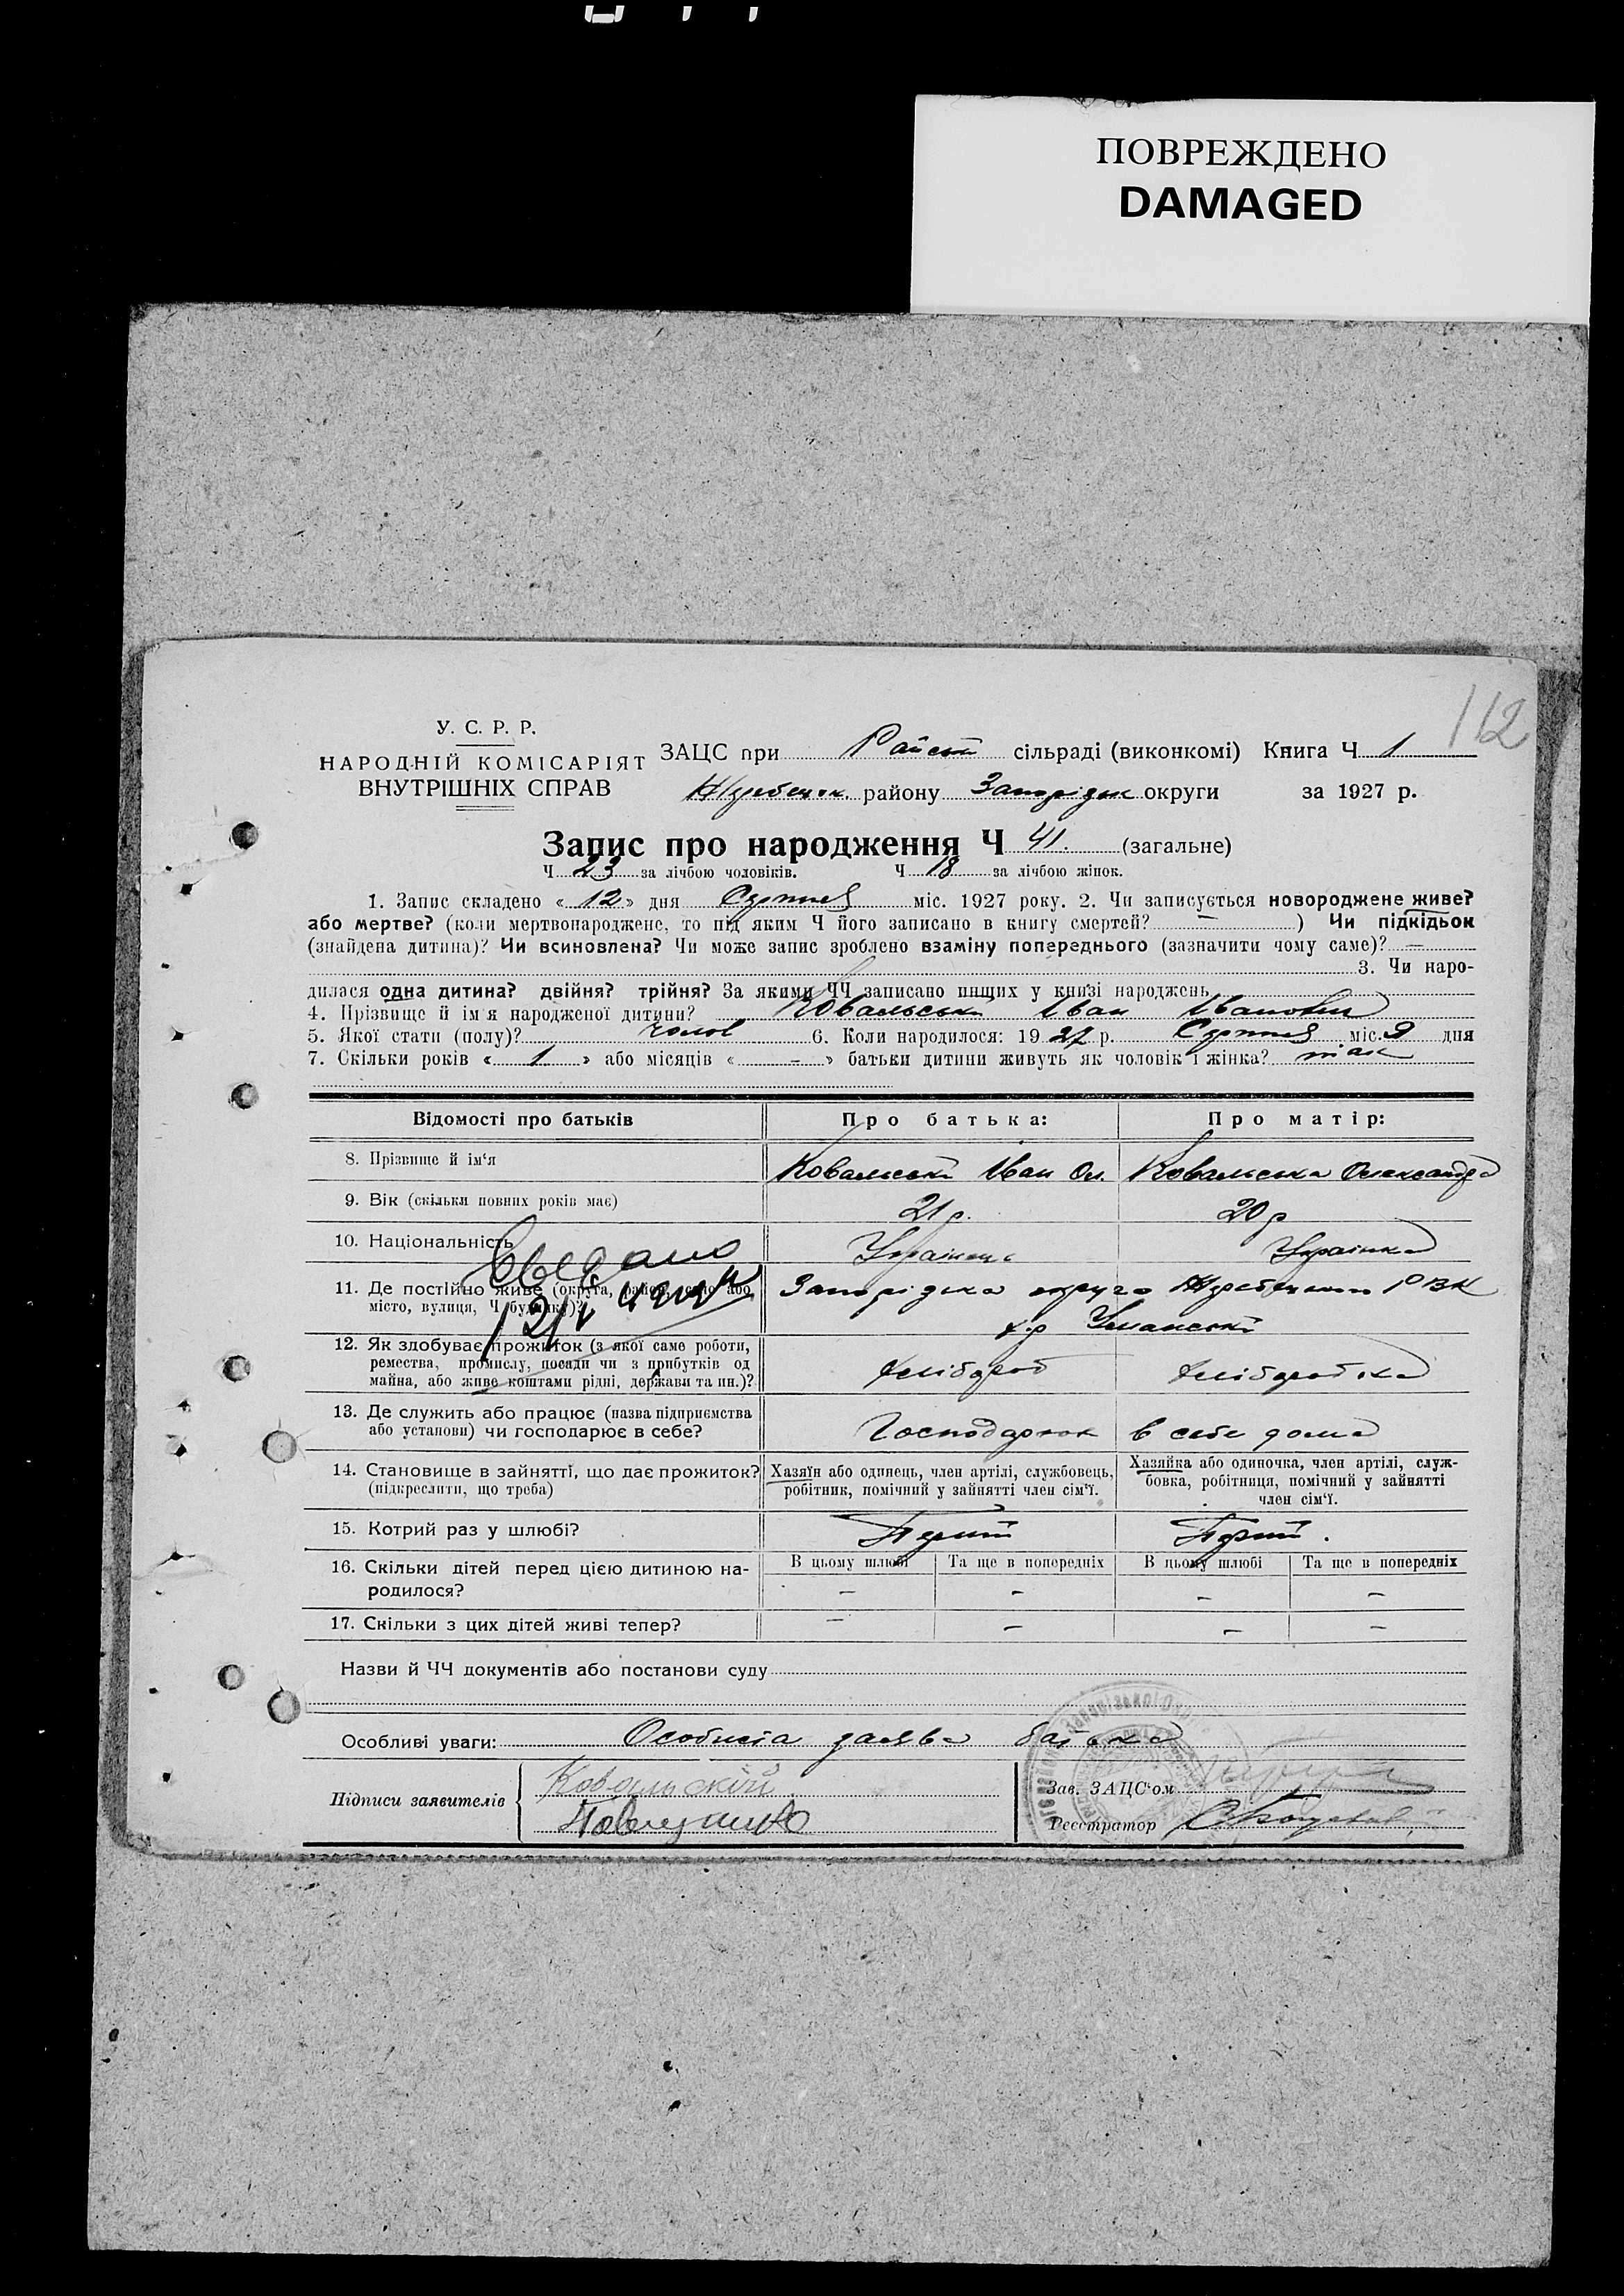 ПОВРЕЖДЕНО
DAMAGED
112
У. С. Р. Р.
НАРОДНІЙ КОМІСАРІЯТ
ВНУТРІШНІХ СПРАВ
ЗАЦС при Райськ сільраді (виконкомі) Книга Ч 1
Жеребецьк. району Запорізьк округи за 1927 р.
Запис про народження Ч 41. (загальне)
Ч 23 за лічбою чоловіків. Ч 18 за лічбою жінок.
1. Запис складено « 12 » дня Серпня міс. 1927 року. 2. Чи записується новороджене живе?
або мертве? (коли мертвонароджене, то під яким Ч його записано в книгу смертей? — ) Чи підкідьок
(знайдена дитина)? Чи всиновлена? Чи може запис зроблено взаміну попереднього (зазначити чому саме)? —
3. Чи наро-
дилася одна дитина? двійня? трійня? За якими ЧЧ записано инщих у книзі народжень
4. Прізвище й ім'я народженої дитини? Ковальськ Іван Іванович
5. Якої стати (полу)? чолов 6. Коли народилося: 19 27 р. Серпня міс. 9 дня
7. Скільки років « 1 » або місяців « - » батьки дитини живуть як чоловік і жінка? так
Відомості про батьків Про батька: Про матір:
8. Прізвище й ім'я Ковальський Іван Ол. Ковальська Олександра
9. Вік (скільки повних років має) 21 р. 20 р
10. Національність Українець Українка
11. Де постійно живе (округа, район, село або
місто, вулиця, Ч будинку)? Запорізька округа Жеребецький РВК
х-р Уманський
12. Як здобуває прожиток (з якої саме роботи,
ремества, промислу, посади чи з прибутків од
майна, або живе коштами рідні, держави та ин.)? хлібороб хліборобка
13. Де служить або працює (назва підприємства
або установи) чи господарює в себе? Господарюк в себе дома
14. Становище в зайнятті, що дає прожиток?
(підкреслити, що треба)
Хазяїн або одинець, член артілі, службовець,
робітник, помічний у зайнятті член сім'ї.
Хазяйка або одиночка, член артілі, служ-
бовка, робітниця, помічний у зайнятті
член сім'ї.
15. Котрий раз у шлюбі? Перший Перший.
16. Скільки дітей перед цією дитиною на-
родилося?
В цьому шлюбі Та ще в попередніх В цьому шлюбі Та ще в попередніх
– – – –
17. Скільки з цих дітей живі тепер? – – – –
Назви й ЧЧ документів або постанови суду
Особливі уваги: Особиста заява батька
Підписи заявителів Ковальскій
Зав. ЗАЦС'ом
Реєстратор